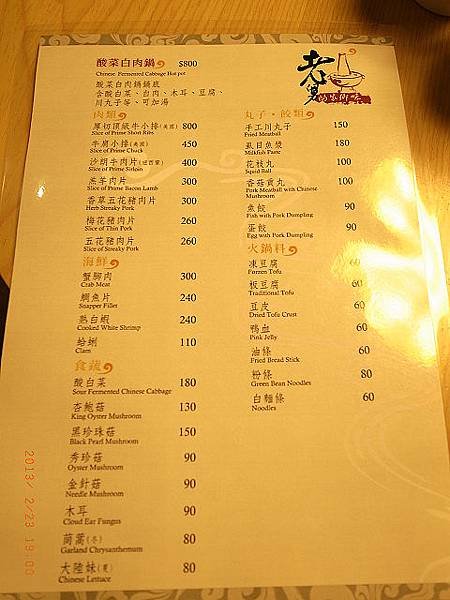 酸菜白肉鍋 $800
Chinese Fermented Cabbage Hot pot
酸菜白肉鍋鍋底
含酸白菜、白肉、木耳、豆腐、
川丸子等、可加湯
肉類
厚切頂級牛小排(美國) 800
Slice of Prime Short Ribs
牛肩小排(美國) 450
Slice of Prime Chuck
沙朗牛肉片(紐西蘭) 400
Slice of Prime Sirloin
羔羊肉片 300
Slice of Prime Bacon Lamb
香草五花豬肉片 300
Herb Streaky Pork
梅花豬肉片 260
Slice of Thin Pork
五花豬肉片 260
Slice of Streaky Pork
海鮮
蟹腳肉 300
Crab Meat
鯛魚片 240
Snapper Fillet
熟白蝦 240
Cooked White Shrimp
蛤蜊 110
Clam
食蔬
酸白菜 180
Sour Fermented Chinese Cabbage
杏鮑菇 130
King Oyster Mushroom
黑珍珠菇 150
Black Pearl Mushroom
秀珍菇 90
Oyster Mushroom
金針菇 90
Needle Mushroom
木耳 90
Cloud Ear Fungus
茼蒿(冬) 80
Garland Chrysanthemum
大陸妹(夏) 80
Chinese Lettuce
丸子‧餃類
手工川丸子 150
Fried Meatball
虱目魚漿 180
Milkfish Paste
花枝丸 100
Squid Ball
香菇貢丸 100
Pork Meatball with Chinese
Mushroom
魚餃 90
Fish with Pork Dumpling
蛋餃 90
Egg with Pork Dumpling
火鍋料
凍豆腐 60
Forzen Tofu
板豆腐 60
Traditional Tofu
豆皮 60
Dried Tofu Crust
鴨血 60
Pink Jelly
油條 60
Fried Bread Stick
粉條 80
Green Bean Noodles
白麵條 60
Noodles
2013/ 2/23 19:00